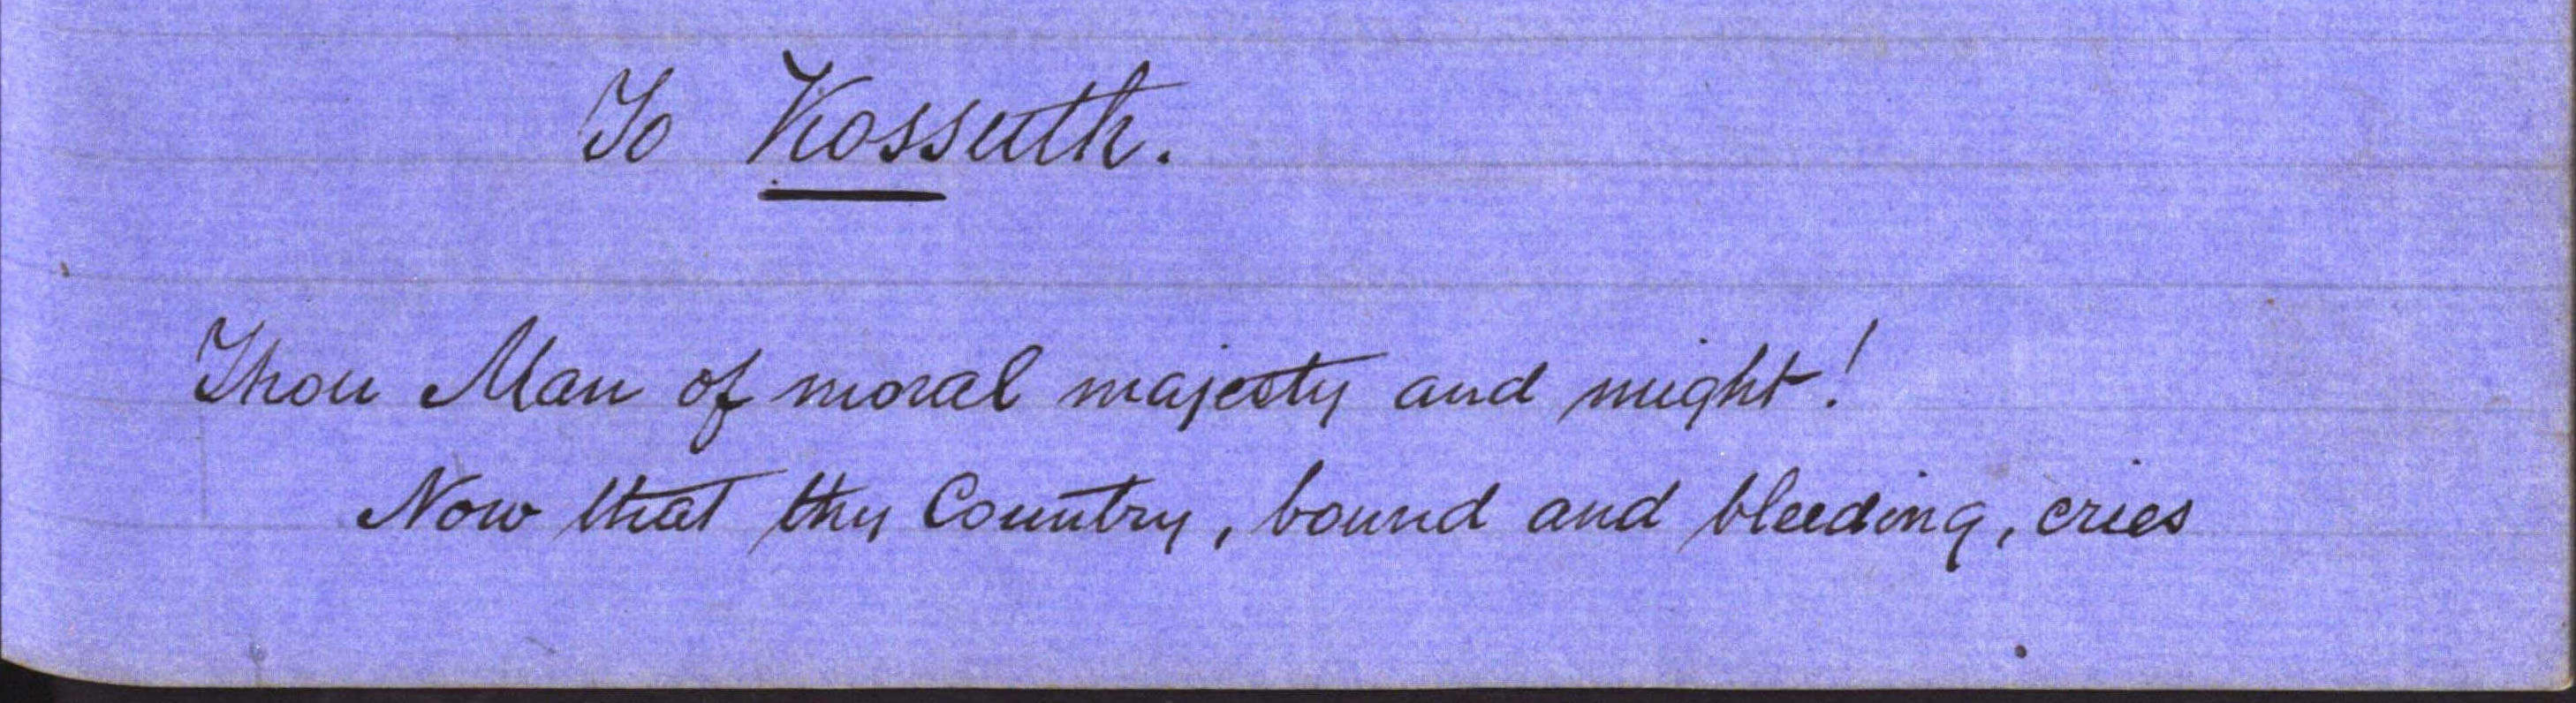 To Kossuth.
Thou Man of moral majesty and might!
Now that thy Country, bound and bleeding, cries